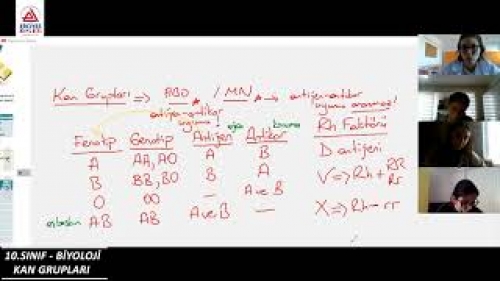 Kan Grupları => ABO / MN → antijen-antikor
uyumu aranmaz!
antijen-antikor
uyumu
Rh Faktörü
Fenotip Genotip Antijen Antikor
A AA, AO A B
B BB, BO B A
O OO — A ve B
AB AB A ve B —
D antijeni
V => Rh+ RR
Rr
X => Rh- rr
10.SINIF - BİYOLOJİ
KAN GRUPLARI